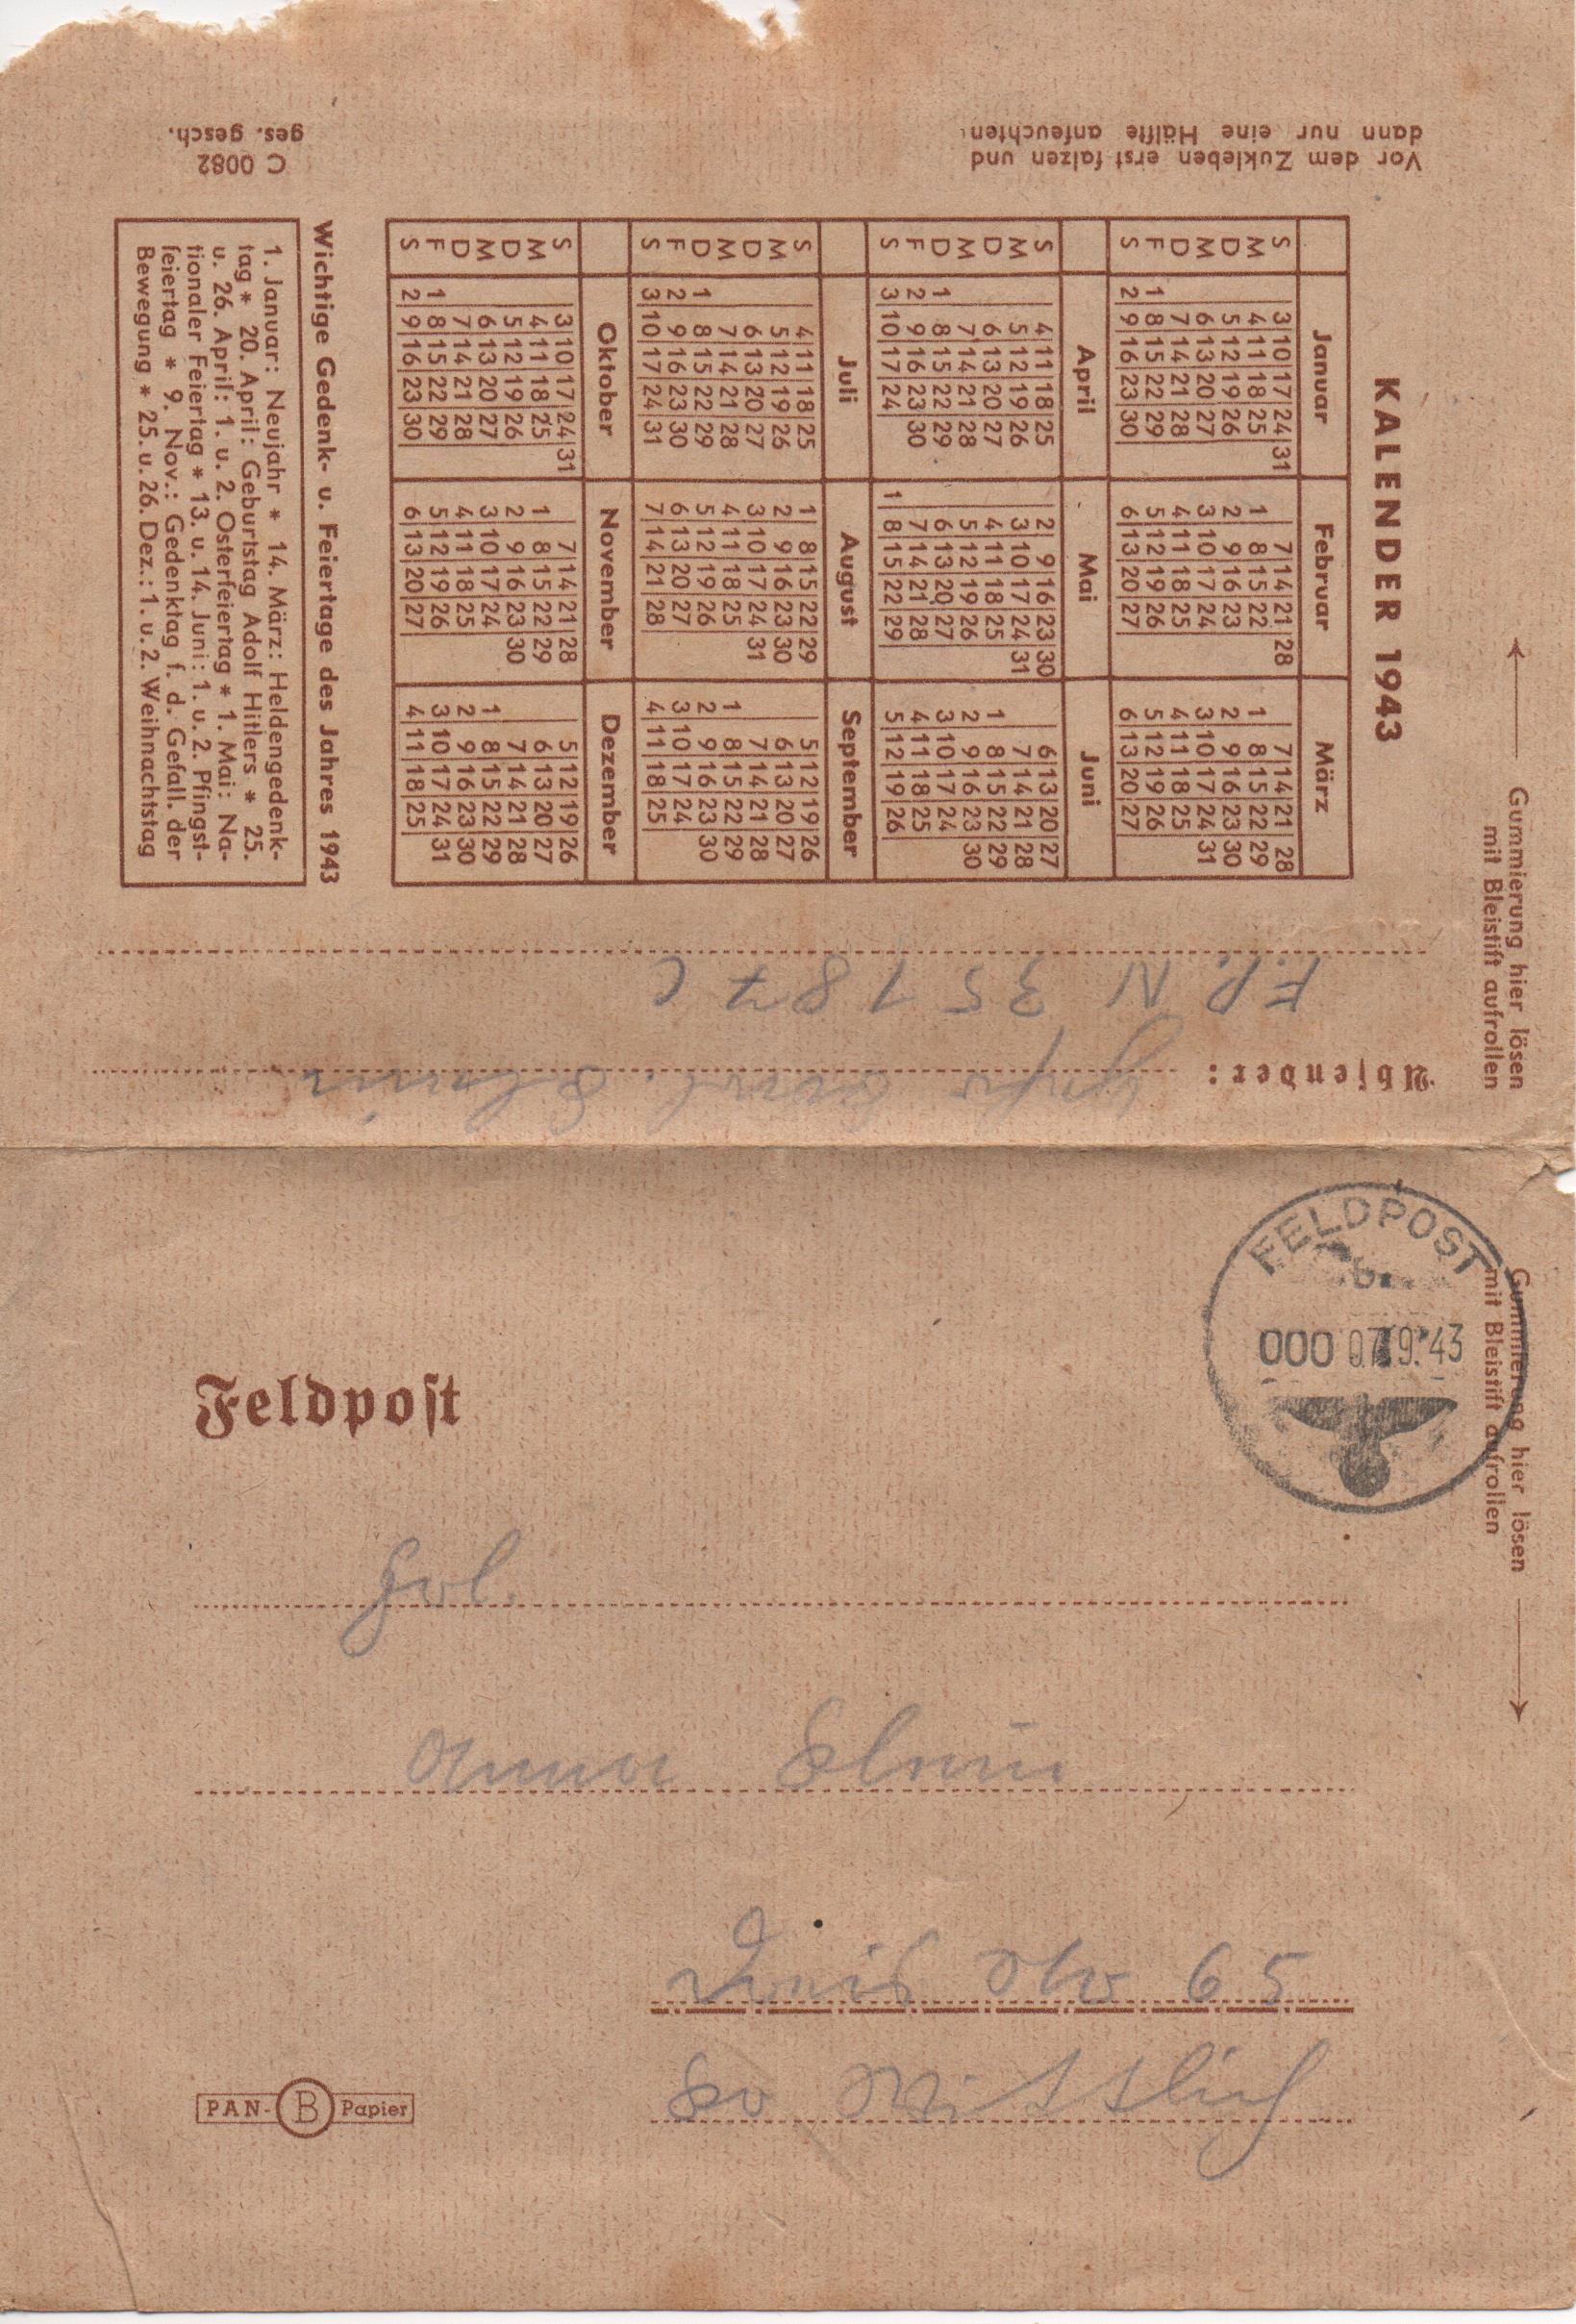 Vor dem Zukleben erst falzen und
dann nur eine Hälfte anfeuchten
C 0082
ges. gesch.
KALENDER 1943
Januar Februar März
S 3 10 17 24 31 7 14 21 28 7 14 21 28
M 4 11 18 25 1 8 15 22 1 8 15 22 29
D 5 12 19 26 2 9 16 23 2 9 16 23 30
M 6 13 20 27 3 10 17 24 3 10 17 24 31
D 7 14 21 28 4 11 18 25 4 11 18 25
F 1 8 15 22 29 5 12 19 26 5 12 19 26
S 2 9 16 23 30 6 13 20 27 6 13 20 27
April Mai Juni
S 4 11 18 25 2 9 16 23 30 6 13 20 27
M 5 12 19 26 3 10 17 24 31 7 14 21 28
D 6 13 20 27 4 11 18 25 1 8 15 22 29
M 7 14 21 28 5 12 19 26 2 9 16 23 30
D 1 8 15 22 29 6 13 20 27 3 10 17 24
F 2 9 16 23 30 7 14 21 28 4 11 18 25
S 3 10 17 24 1 8 15 22 29 5 12 19 26
Juli August September
S 4 11 18 25 1 8 15 22 29 5 12 19 26
M 5 12 19 26 2 9 16 23 30 6 13 20 27
D 6 13 20 27 3 10 17 24 31 7 14 21 28
M 7 14 21 28 4 11 18 25 1 8 15 22 29
D 1 8 15 22 29 5 12 19 26 2 9 16 23 30
F 2 9 16 23 30 6 13 20 27 3 10 17 24
S 3 10 17 24 31 7 14 21 28 4 11 18 25
Oktober November Dezember
S 3 10 17 24 31 7 14 21 28 5 12 19 26
M 4 11 18 25 1 8 15 22 29 6 13 20 27
D 5 12 19 26 2 9 16 23 30 7 14 21 28
M 6 13 20 27 3 10 17 24 1 8 15 22 29
D 7 14 21 28 4 11 18 25 2 9 16 23 30
F 1 8 15 22 29 5 12 19 26 3 10 17 24 31
S 2 9 16 23 30 6 13 20 27 4 11 18 25
Wichtige Gedenk- u. Feiertage des Jahres 1943
1. Januar: Neujahr * 14. März: Heldengedenk-
tag * 20. April: Geburtstag Adolf Hitlers * 25.
u. 26. April: 1. u. 2. Osterfeiertag * 1. Mai: Na-
tionaler Feiertag * 13. u. 14. Juni: 1. u. 2. Pfingst-
feiertag * 9. Nov.: Gedenktag f. d. Gefall. der
Bewegung * 25. u. 26. Dez.: 1. u. 2. Weihnachtstag
Gummierung hier lösen
mit Bleistift aufrollen
Absender:
F.P. N 35187 C
FELDPOST
b
000 07.9.43
Gummierung hier lösen
mit Bleistift aufrollen
Feldpost
Frl.
Anna
65
Wittlich
PAN-B Papier